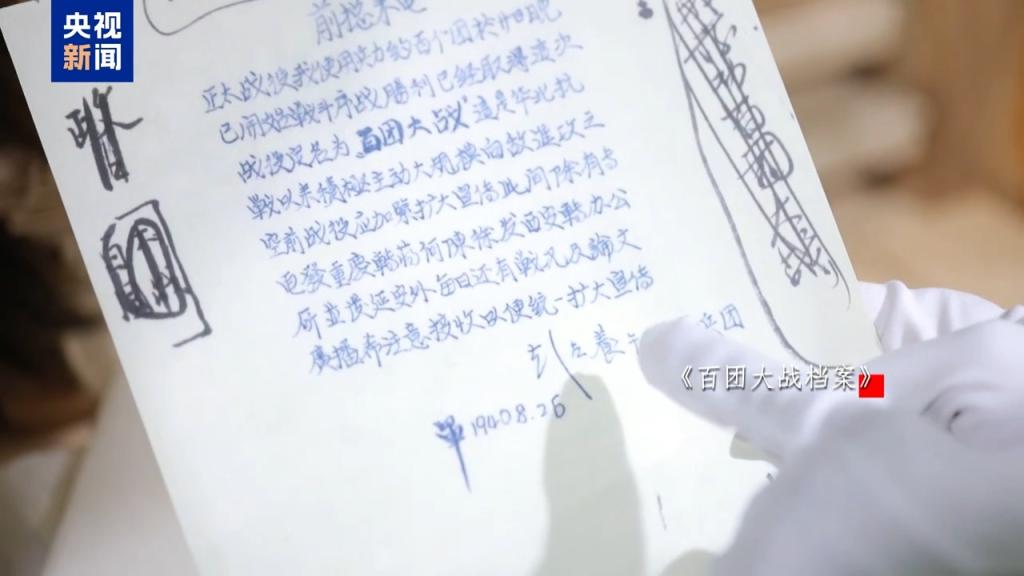 央视
新闻
前总来电
正太战役我使用兵力约百个团於哿晚
已开始戰斗序战勝利已经取得這次
战役定名为百团大战這是华北抗
戰以来積極主动大规模向敌進攻之
空前战役应加緊扩大宣传此间除有专
电發重慶 蒋何陳徐 西安 办公
所並发延安外每日还有戰况及論文
廣播希注意接收以便统一扩大宣传
左 兵团
1940.8.26
《百团大战档案》